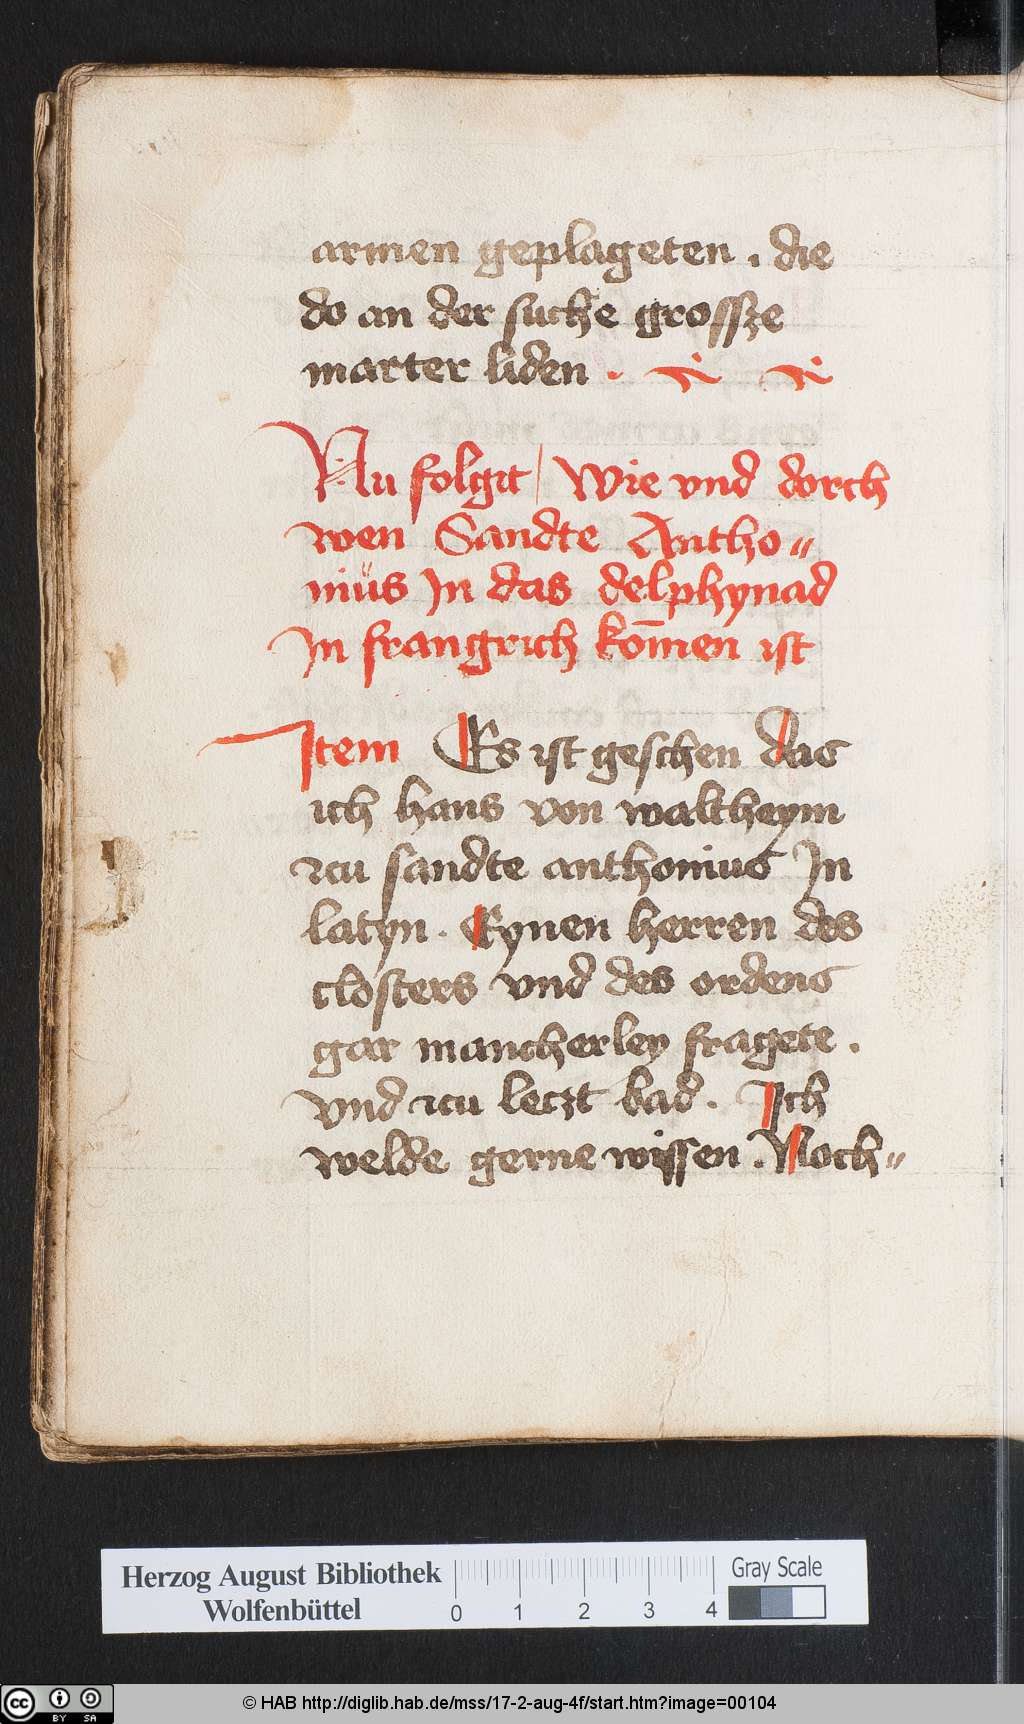 armen geplageten . die
do an der suche grossze
marter liden .
Nu folgit / Wie vnd dorch
wen Sandte Antho=
nius In das delphynad
In frangrich kom̄en ist
Item Es ist geschen das
ich hans von waltheym
czu sandte anthonius In
latyn . Eynen herren des
closters vnd des ordens
gar mancherley fragete .
vnd czu leczt bad . Ich
welde gerne wissen . Noch=
Herzog August Bibliothek
Wolfenbüttel
0 1 2 3 4
Gray Scale
cc BY SA
© HAB http://diglib.hab.de/mss/17-2-aug-4f/start.htm?image=00104